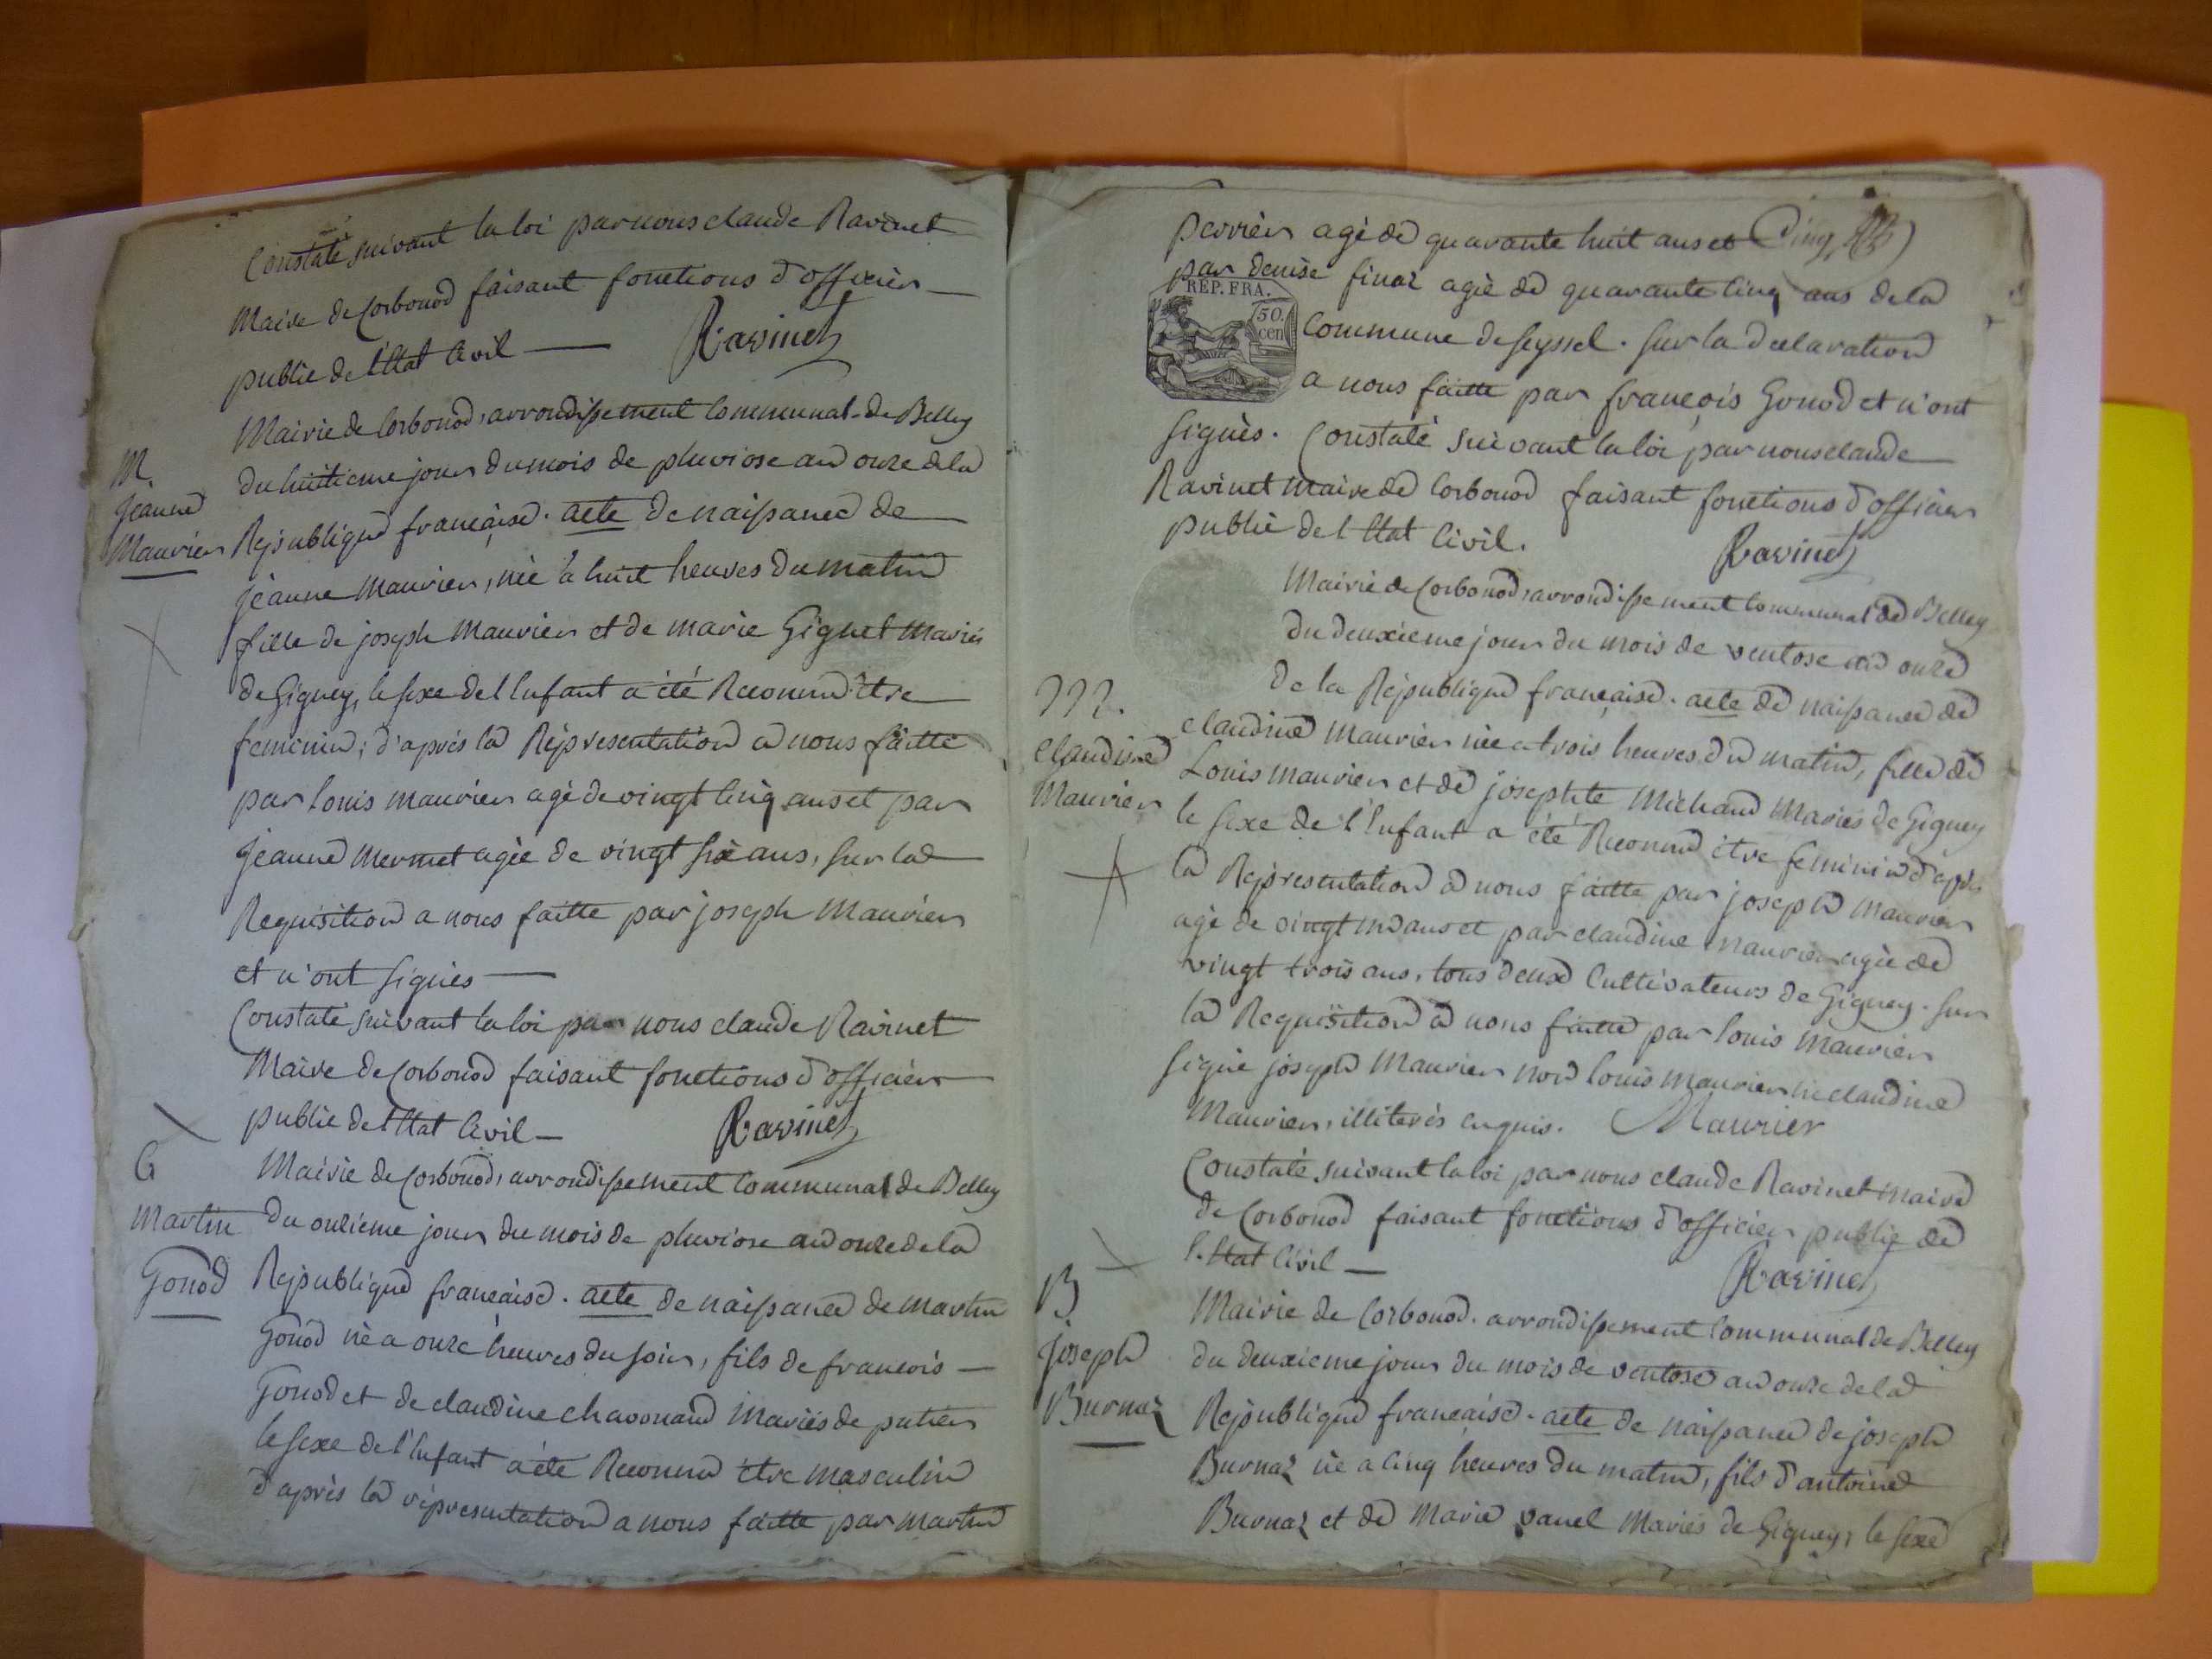 Constaté suivant la loi par nous claude Ravinet
Maire de Corbonod faisant fonctions d'officier
public de l'Etat Civil — Ravinet
Mairie de Corbonod, arrondissement Communal de Belley
M.
du huitieme jour du mois de pluviose an onze de la
Jeanne
Republique française. acte de naissance de
Maurier
jeanne Maurier, née à huit heures du matin
fille de joseph Maurier et de marie Gignet Mariés
de Gigney, le sexe de l'Enfant a été Reconnu être
feminin; d'après la Représentation a nous faitte
par louis maurier agé de vingt cinq ans et par
Jeanne Mermet agée de vingt six ans, sur la
Requisition a nous faitte par joseph Maurier
et n'ont signés —
Constaté suivant la loi par nous claude Ravinet
Maire de Corbonod faisant fonctions d'officier
public de l'Etat Civil — Ravinet
G
Mairie de Corbonod, arrondissement Communal de Belley
Martin
du onzieme jour du mois de pluviose an onze de la
Gonod
République française. acte de naissance de martin
Gonod né a onze heures du soir, fils de francois —
Gonod et de claudine chavonand Mariés de puthier
le sexe de l'Enfant a été Reconnu être masculin
d'après la réprésentation a nous faitte par martin
perrier agé de quarante huit ans et Cinq
par denise finaz agée de quarante cinq ans de la
REP. FRA.
50. cen
Commune de seyssel. sur la declaration
a nous faitte par françois Gonod et n'ont
signés. Constaté suivant la loi par nous claude
Ravinet maire de Corbonod faisant fonctions d'officier
public de l'Etat Civil. Ravinet
Mairie de Corbonod, arrondissement Communal de Belley
du deuxieme jour du mois de ventose an onze
de la République française. acte de naissance de
M.
claudine Maurier née a trois heures du matin, fille de
Claudine
Louis maurier et de josephte Michaud Mariés de Gigney
Maurier
le sexe de l'Enfant a été Reconnu être feminin d'après
la Représentation a nous faitte par joseph Maurier
agé de vingt un ans et par claudine maurier agée de
vingt trois ans, tous deux Cultivateurs de Gigney. sur
la Requisition a nous faitte par louis Maurier
signé joseph Maurier non louis maurier ni claudine
Maurier, illiterés enquis. Maurier
Constaté suivant la loi par nous claude Ravinet maire
de Corbonod faisant fonctions d'officier public de
l'Etat Civil — Ravinet
B
Mairie de Corbonod. arrondissement Communal de Belley
Joseph
du deuxieme jour du mois de ventose an onze de la
Burnaz
République française. acte de naissance de joseph
Burnaz né a cinq heures du matin, fils d'antoine
Burnaz et de Marie vanel Mariés de Gigney, le sexe